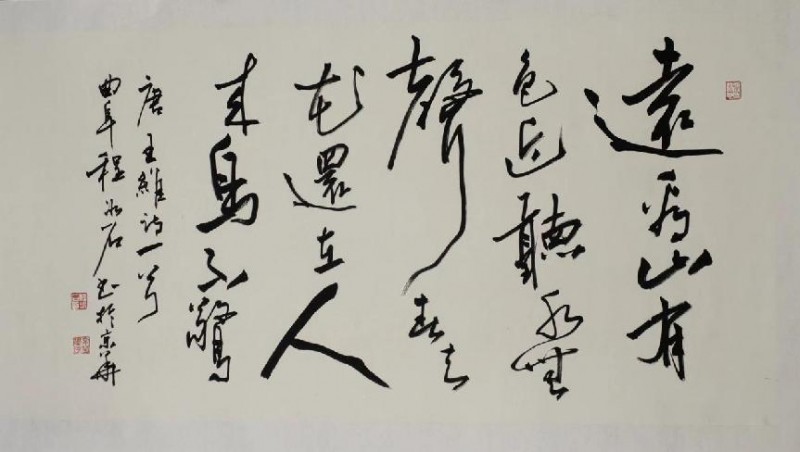 遠看山有
色近聽水無
聲春去
花還在人
來鳥不驚
唐王維詩一首
曲阜程 石书於京華